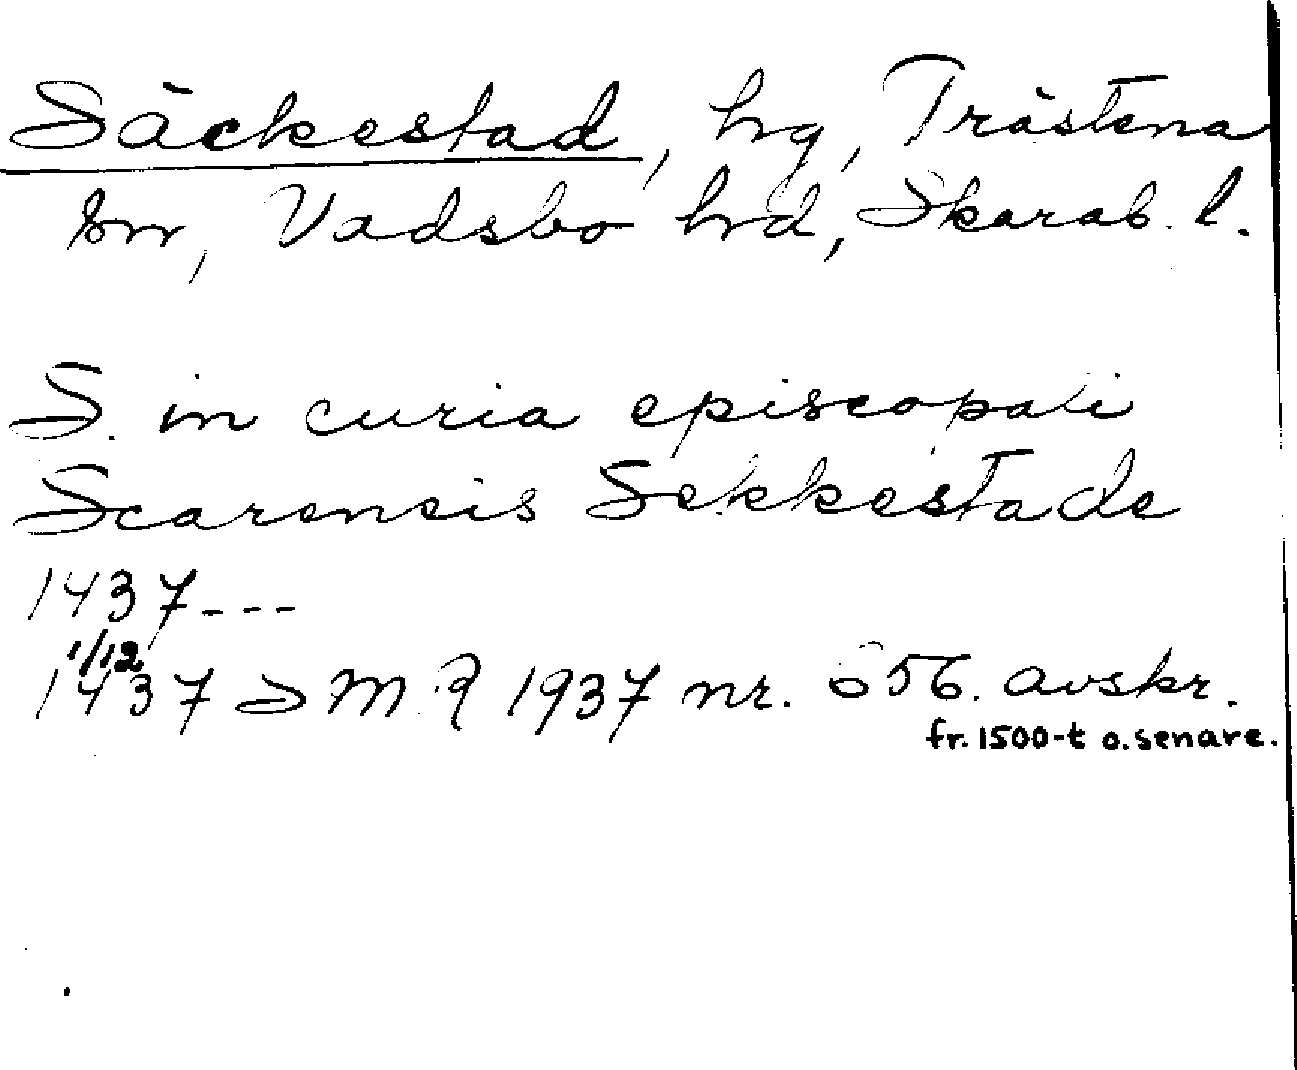 Säckestad, hrg, Trästena
sn, Vadsbo hrd, Skarab. l.
S. in curia episcopali
Scarensis Sekkestade
1437---
1437 1/12 DMR 1937 nr. 656. avskr.
fr. 1500-t o. senare.